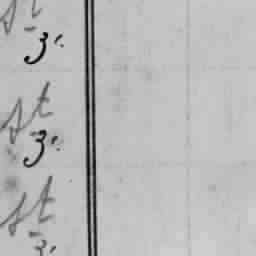 st
3.
st
3.
st
3.